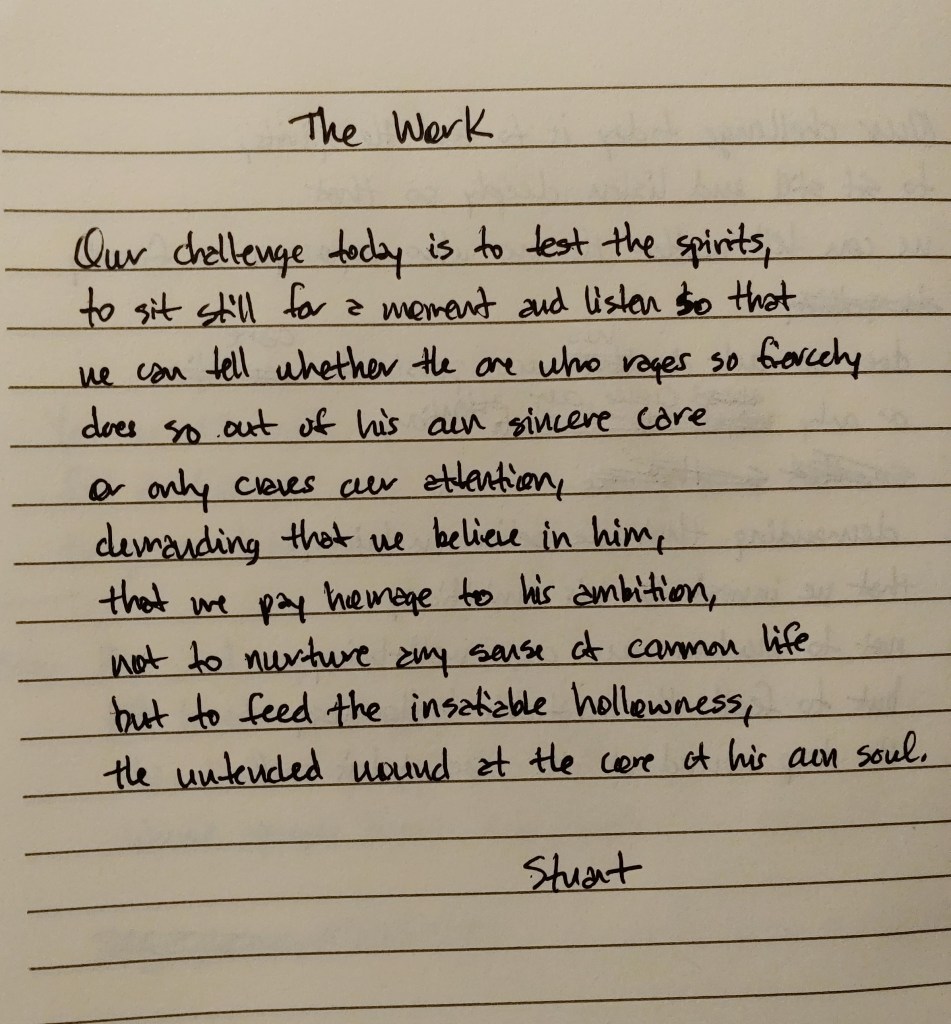 The Work
Our challenge today is to test the spirits,
to sit still for a moment and listen so that
we can tell whether the one who rages so fiercely
does so out of his own sincere care
or only craves our attention,
demanding that we believe in him,
that we pay homage to his ambition,
not to nurture any sense of common life
but to feed the insatiable hollowness,
the untended wound at the core of his own soul.
Stuart